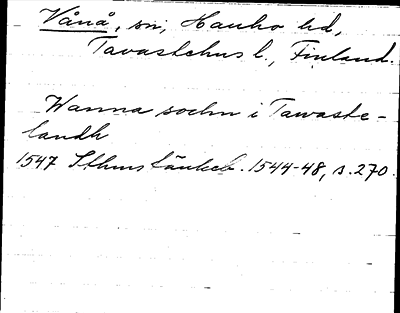 Vånå, sn, Hauho hd,
Tavastehus l., Finland.
Wanna sochn i Tawaste-
landh
1547 Sthms tänkeb. 1544-48, s. 270.